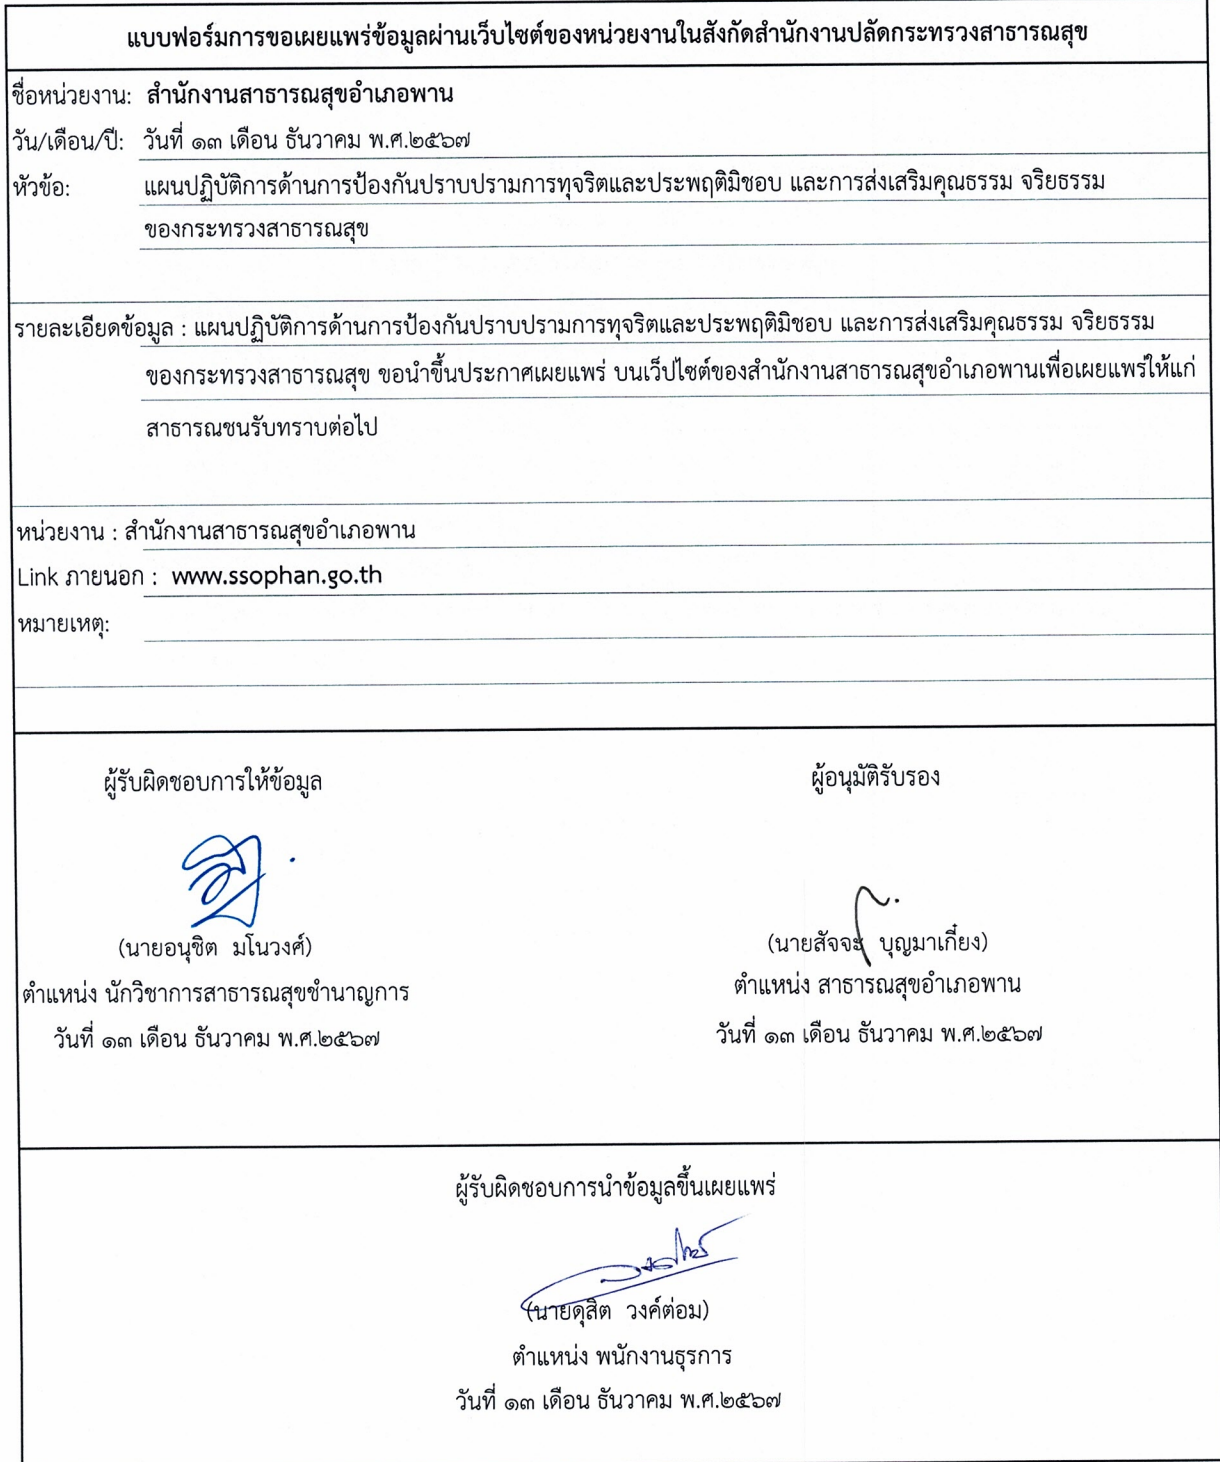 แบบฟอร์มการขอเผยแพร่ข้อมูลผ่านเว็บไซต์ของหน่วยงานในสังกัดสำนักงานปลัดกระทรวงสาธารณสุข
ชื่อหน่วยงาน: สำนักงานสาธารณสุขอำเภอพาน
วัน/เดือน/ปี: วันที่ ๑๓ เดือน ธันวาคม พ.ศ.๒๕๖๗
หัวข้อ: แผนปฏิบัติการด้านการป้องกันปราบปรามการทุจริตและประพฤติมิชอบ และการส่งเสริมคุณธรรม จริยธรรม
ของกระทรวงสาธารณสุข
รายละเอียดข้อมูล : แผนปฏิบัติการด้านการป้องกันปราบปรามการทุจริตและประพฤติมิชอบ และการส่งเสริมคุณธรรม จริยธรรม
ของกระทรวงสาธารณสุข ขอนำขึ้นประกาศเผยแพร่ บนเว็ปไซต์ของสำนักงานสาธารณสุขอำเภอพานเพื่อเผยแพร่ให้แก่
สาธารณชนรับทราบต่อไป
หน่วยงาน : สำนักงานสาธารณสุขอำเภอพาน
Link ภายนอก : www.ssophan.go.th
หมายเหตุ:
ผู้รับผิดชอบการให้ข้อมูล
(นายอนุชิต มโนวงศ์)
ตำแหน่ง นักวิชาการสาธารณสุขชำนาญการ
วันที่ ๑๓ เดือน ธันวาคม พ.ศ.๒๕๖๗
ผู้อนุมัติรับรอง
(นายสัจจะ บุญมาเกี๋ยง)
ตำแหน่ง สาธารณสุขอำเภอพาน
วันที่ ๑๓ เดือน ธันวาคม พ.ศ.๒๕๖๗
ผู้รับผิดชอบการนำข้อมูลขึ้นเผยแพร่
(นายดุสิต วงค์ต่อม)
ตำแหน่ง พนักงานธุรการ
วันที่ ๑๓ เดือน ธันวาคม พ.ศ.๒๕๖๗